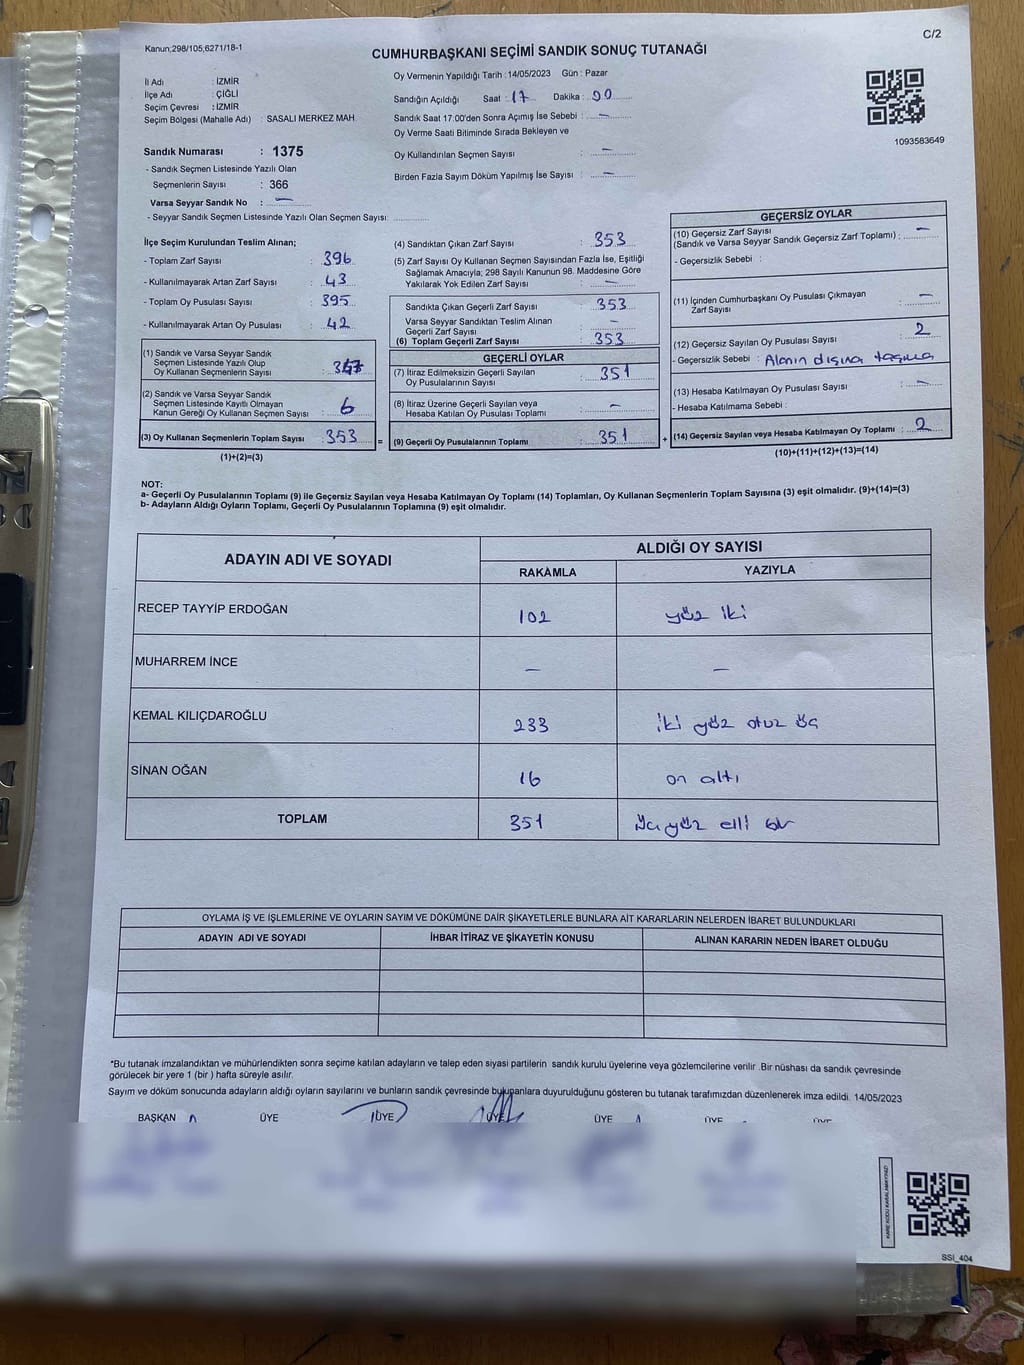 Kanun;298/105,6271/18-1
C/2
CUMHURBAŞKANI SEÇİMİ SANDIK SONUÇ TUTANAĞI
İl Adı : İZMİR
İlçe Adı : ÇİĞLİ
Seçim Çevresi : İZMİR
Seçim Bölgesi (Mahalle Adı) : SASALI MERKEZ MAH.
Sandık Numarası : 1375
- Sandık Seçmen Listesinde Yazılı Olan
Seçmenlerin Sayısı : 366
Varsa Seyyar Sandık No : —
- Seyyar Sandık Seçmen Listesinde Yazılı Olan Seçmen Sayısı: ............
Oy Vermenin Yapıldığı Tarih : 14/05/2023 Gün : Pazar
Sandığın Açıldığı Saat : 17 Dakika : 00
Sandık Saat 17:00'den Sonra Açımış İse Sebebi : —
Oy Verme Saati Bitiminde Sırada Bekleyen ve
Oy Kullandırılan Seçmen Sayısı : —
Birden Fazla Sayım Döküm Yapılmış İse Sayısı : —
1093583649
İlçe Seçim Kurulundan Teslim Alınan;
- Toplam Zarf Sayısı : 396
- Kullanılmayarak Artan Zarf Sayısı : 43
- Toplam Oy Pusulası Sayısı : 395
- Kullanılmayarak Artan Oy Pusulası : 42
(1) Sandık ve Varsa Seyyar Sandık
Seçmen Listesinde Yazılı Olup
Oy Kullanan Seçmenlerin Sayısı : 347
(2) Sandık ve Varsa Seyyar Sandık
Seçmen Listesinde Kayıtlı Olmayan
Kanun Gereği Oy Kullanan Seçmen Sayısı : 6
(3) Oy Kullanan Seçmenlerin Toplam Sayısı : 353 =
(1)+(2)=(3)
(4) Sandıktan Çıkan Zarf Sayısı : 353
(5) Zarf Sayısı Oy Kullanan Seçmen Sayısından Fazla İse, Eşitliği
Sağlamak Amacıyla; 298 Sayılı Kanunun 98. Maddesine Göre
Yakılarak Yok Edilen Zarf Sayısı : —
Sandıkta Çıkan Geçerli Zarf Sayısı : 353
Varsa Seyyar Sandıktan Teslim Alınan
Geçerli Zarf Sayısı : —
(6) Toplam Geçerli Zarf Sayısı : 353
GEÇERLİ OYLAR
(7) İtiraz Edilmeksizin Geçerli Sayılan
Oy Pusulalarının Sayısı : 351
(8) İtiraz Üzerine Geçerli Sayılan veya
Hesaba Katılan Oy Pusulası Toplamı : —
(9) Geçerli Oy Pusulalarının Toplamı : 351 +
GEÇERSİZ OYLAR
(10) Geçersiz Zarf Sayısı
(Sandık ve Varsa Seyyar Sandık Geçersiz Zarf Toplamı) : —
- Geçersizlik Sebebi :
(11) İçinden Cumhurbaşkanı Oy Pusulası Çıkmayan
Zarf Sayısı : —
(12) Geçersiz Sayılan Oy Pusulası Sayısı : 2
- Geçersizlik Sebebi : Alanın dışına taşma
(13) Hesaba Katılmayan Oy Pusulası Sayısı : —
- Hesaba Katılmama Sebebi :
(14) Geçersiz Sayılan veya Hesaba Katılmayan Oy Toplamı : 2
(10)+(11)+(12)+(13)=(14)
NOT:
a- Geçerli Oy Pusulalarının Toplamı (9) ile Geçersiz Sayılan veya Hesaba Katılmayan Oy Toplamı (14) Toplamları, Oy Kullanan Seçmenlerin Toplam Sayısına (3) eşit olmalıdır. (9)+(14)=(3)
b- Adayların Aldığı Oyların Toplamı, Geçerli Oy Pusulalarının Toplamına (9) eşit olmalıdır.
ADAYIN ADI VE SOYADI
ALDIĞI OY SAYISI
RAKAMLA YAZIYLA
RECEP TAYYİP ERDOĞAN 102 yüz iki
MUHARREM İNCE — —
KEMAL KILIÇDAROĞLU 233 iki yüz otuz üç
SİNAN OĞAN 16 on altı
TOPLAM 351 Üçyüz elli bir
OYLAMA İŞ VE İŞLEMLERİNE VE OYLARIN SAYIM VE DÖKÜMÜNE DAİR ŞİKAYETLERLE BUNLARA AİT KARARLARIN NELERDEN İBARET BULUNDUKLARI
ADAYIN ADI VE SOYADI İHBAR İTİRAZ VE ŞİKAYETİN KONUSU ALINAN KARARIN NEDEN İBARET OLDUĞU
*Bu tutanak imzalandıktan ve mühürlendikten sonra seçime katılan adayların ve talep eden siyasi partilerin sandık kurulu üyelerine veya gözlemcilerine verilir .Bir nüshası da sandık çevresinde
görülecek bir yere 1 (bir ) hafta süreyle asılır.
Sayım ve döküm sonucunda adayların aldığı oyların sayılarını ve bunların sandık çevresinde bulunanlara duyurulduğunu gösteren bu tutanak tarafımızdan düzenlenerek imza edildi. 14/05/2023
BAŞKAN ÜYE ÜYE ÜYE ÜYE ÜYE ÜYE
KARE KODU KARALAMAYINIZ!
SSI_404